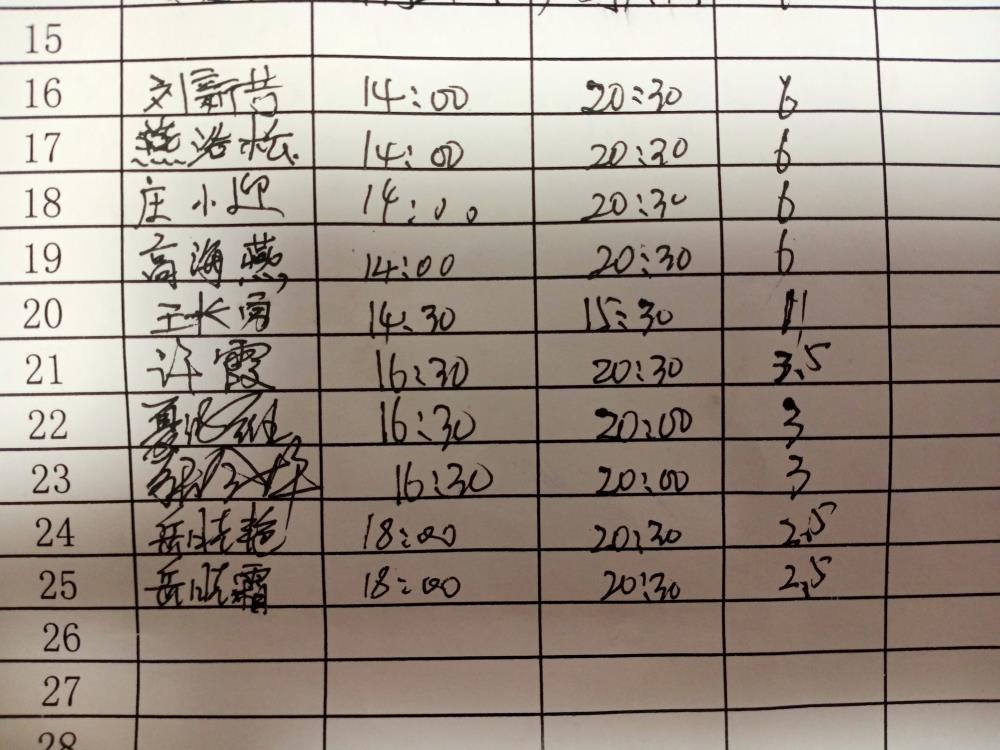 15
16 刘新苦 14:00 20:30 6
17 燕浩松 14:00 20:30 6
18 庄小迎 14:00 20:30 6
19 高海燕 14:00 20:30 6
20 王长 14:30 15:30 1
21 许霞 16:30 20:30 3.5
22 16:30 20:00 3
23 16:30 20:00 3
24 岳晓艳 18:00 20:30 2.5
25 岳晓霜 18:00 20:30 2.5
26
27
28